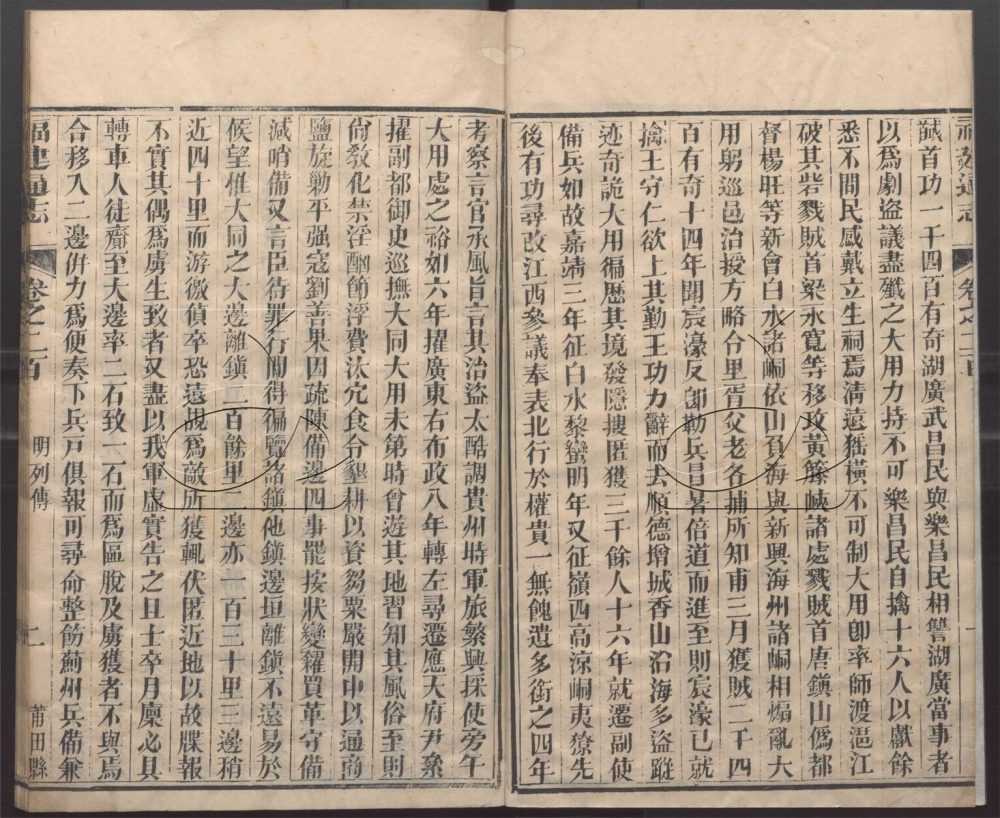 福建通志 卷之二百
馘首功一千四百有奇湖廣武昌民與樂昌民相讐湖廣當事者
以爲劇盜議盡殲之大用力持不可樂昌民自擒十六人以獻餘
悉不問民感戴立生祠焉清遠猺橫不可制大用卽率師渡滬江
破其砦戮賊首梁永寬等移攻黃籐峽諸處戮賊首唐鎭山僞都
督楊旺等新會白水諸峒依山負海與新興海州諸峒相煽亂大
用躬巡邑治授方略令里胥父老各捕所知甫三月獲賊二千四
百有奇十四年聞宸濠反卽勒兵晷倍道而進至則宸濠已就
擒王守仁欲上其勤王功力辭而去順德增城香山沿海多盜蹤
迹奇詭大用徧歷其境發隱搜匿獲三千餘人十六年就遷副使
備兵如故嘉靖三年征白水黎蠻明年又征嶺西高涼峒夷獠先
後有功尋改江西參議奉表北行於權貴一無餽遺多銜之四年
考察言官承風旨言其治盜太酷調貴州時軍旅繁興採使旁午
大用處之裕如六年擢廣東右布政八年轉左尋遷應天府尹彙
擢副都御史巡撫大同大用未第時會遊其地習知其風俗至則
尙敎化禁淫酗節浮費汰冗食令墾耕以資芻粟嚴開中以通商
鹽旋勦平强寇劉善果因疏陳備邊四事罷按狀變糴買革守備
減哨備又言臣待罪行間得徧覽諸鎭他鎭邊垣離鎭不遠易於
候望惟大同之大邊離鎭二百餘里二邊亦一百三十里三邊稍
近四十里而游徼偵卒恐遠規爲敵所獲輒伏匿近地以故牒報
不實其偶爲虜生致者又盡以我軍虛實告之且士卒月廪必具
轉車人徒齎至大邊率二石致一石而爲區脫及虜獲者不與焉
合移入二邊倂力爲便奏下兵戸俱報可尋命整飭薊州兵備兼
福建通志 卷之二百 明列傳 二 莆田縣